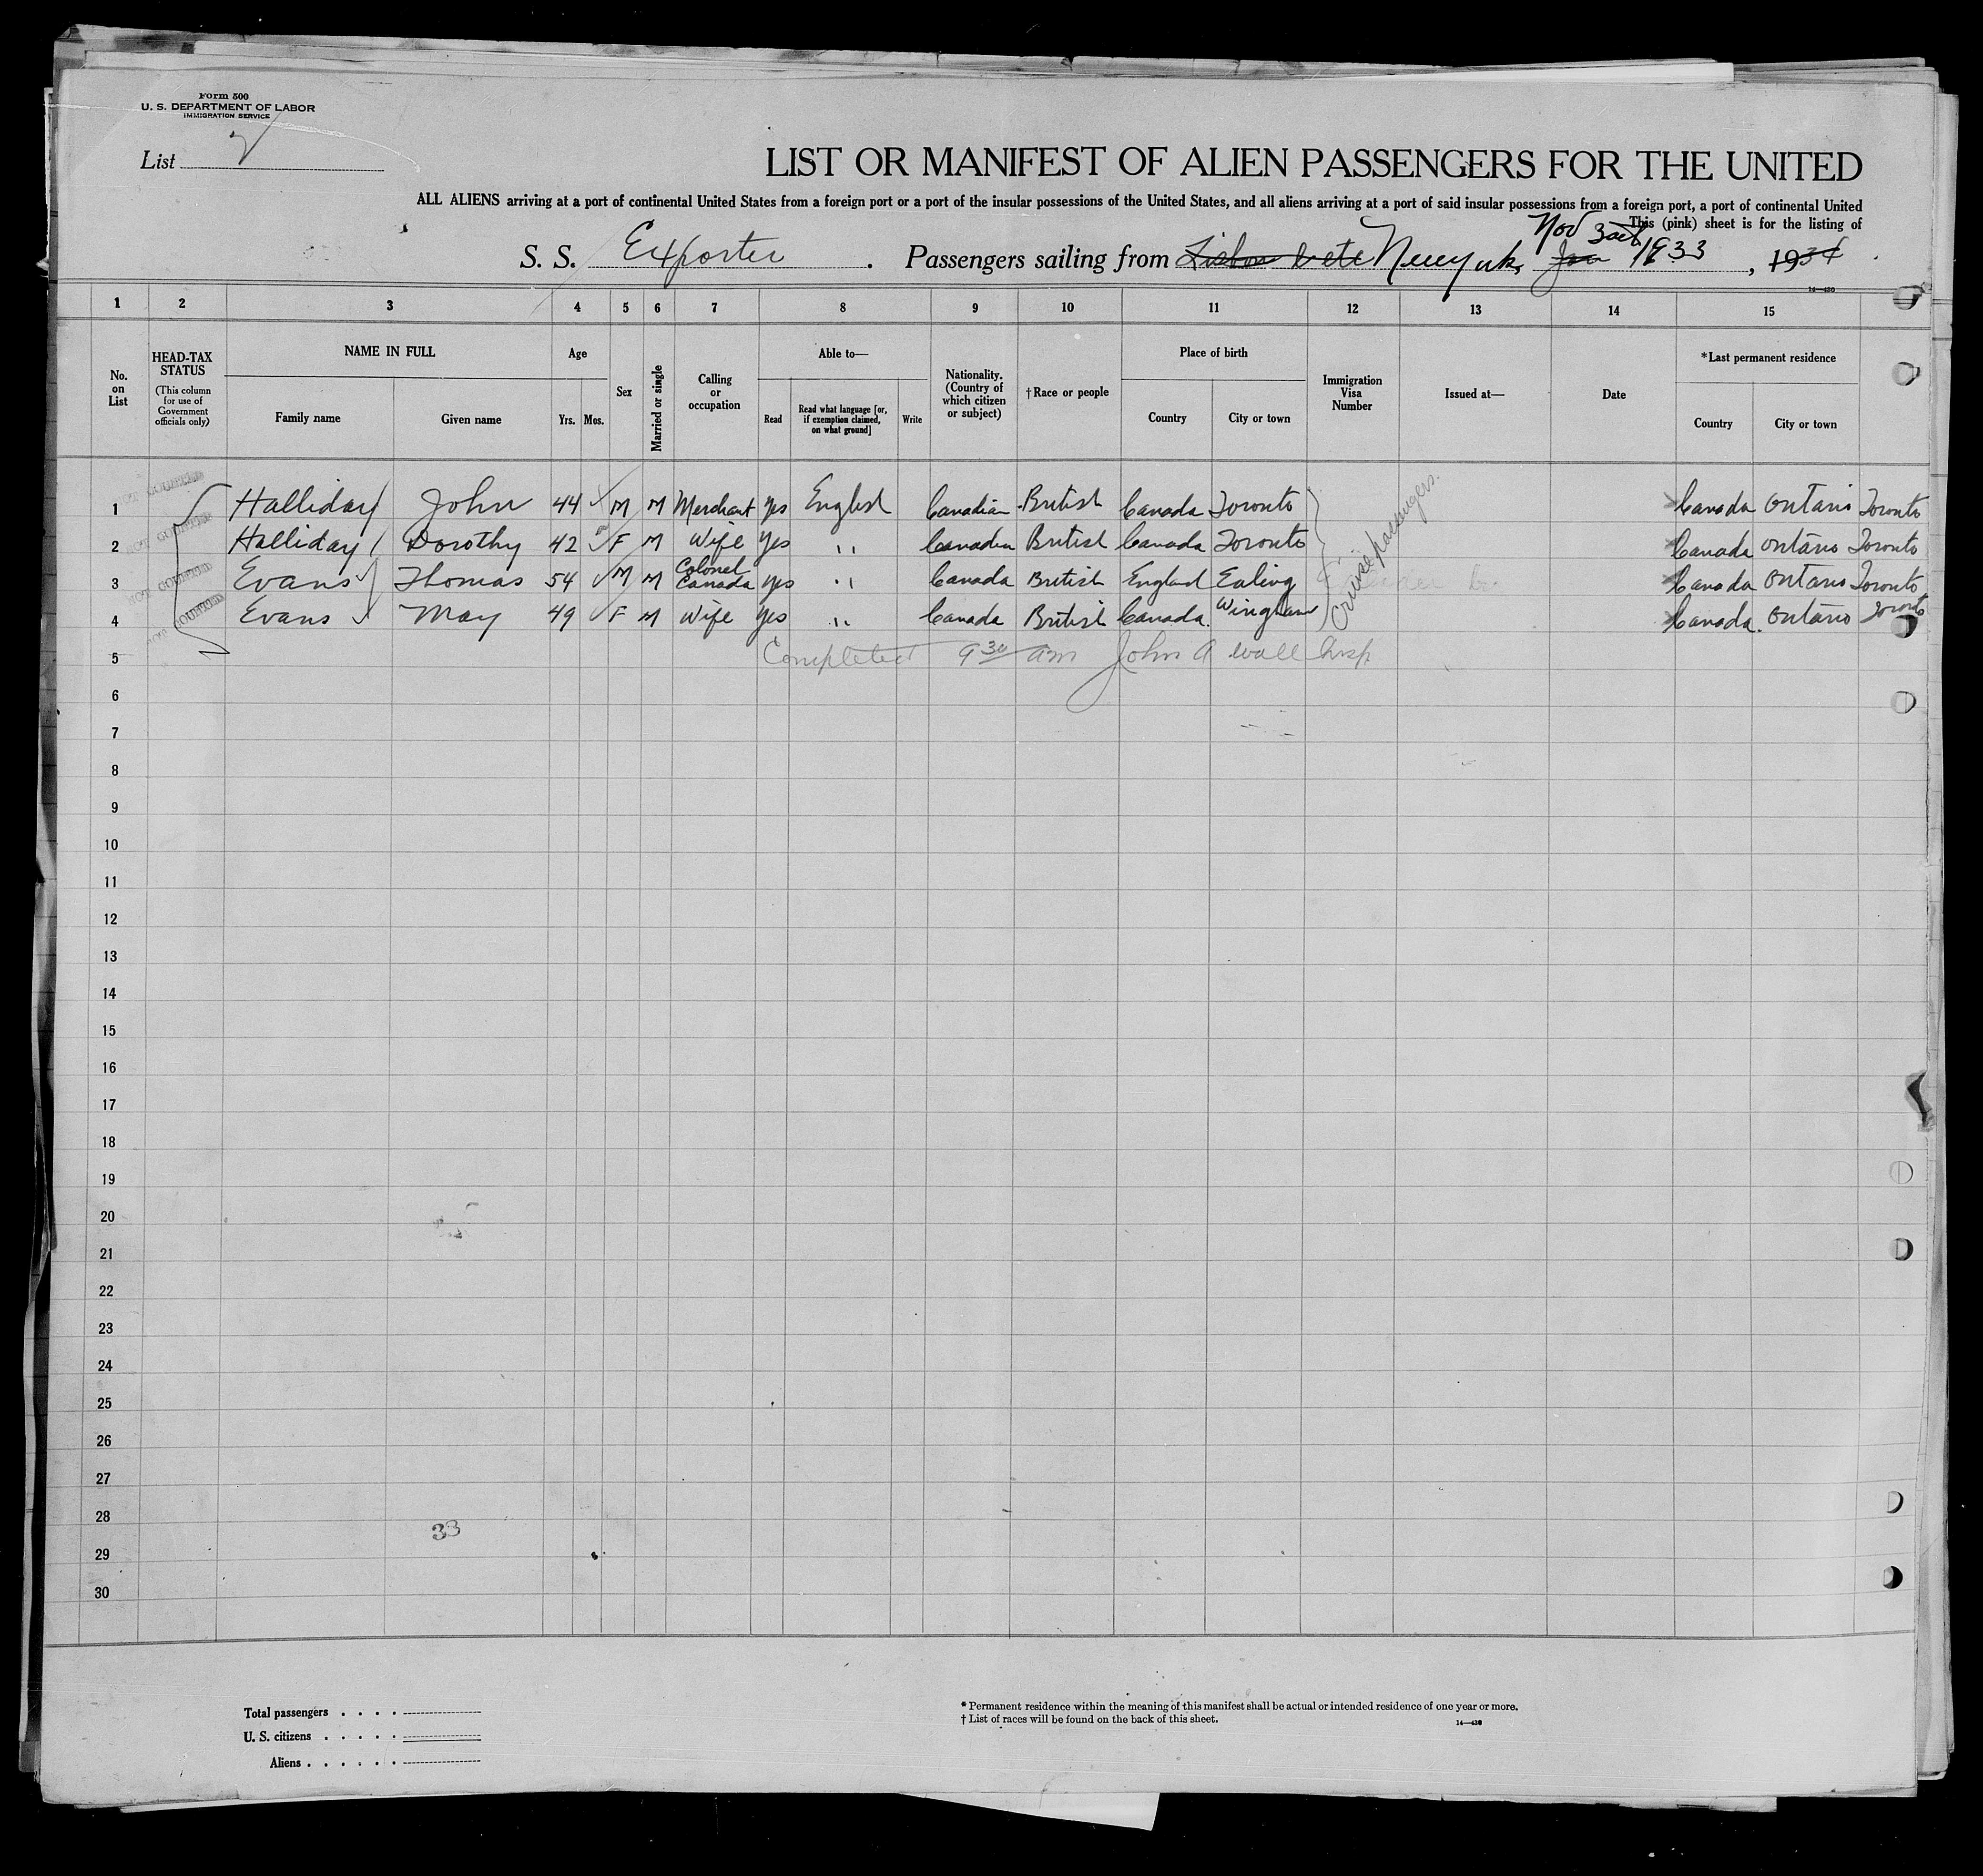 Form 500
U. S. DEPARTMENT OF LABOR
IMMIGRATION SERVICE
List 2
LIST OR MANIFEST OF ALIEN PASSENGERS FOR THE UNITED
ALL ALIENS arriving at a port of continental United States from a foreign port or a port of the insular possessions of the United States, and all aliens arriving at a port of said insular possessions from a foreign port, a port of continental United
This (pink) sheet is for the listing of
S. S. Exporter . Passengers sailing from Lisbon New York, Nov 1933 Jan , 1934
14—430
1 2 3 4 5 6 7 8 9 10 11 12 13 14 15
No. on List
HEAD-TAX STATUS
(This column for use of Government officials only)
NAME IN FULL
Family name Given name
Age
Yrs. Mos.
Sex
Married or single
Calling or occupation
Able to—
Read
Read what language [or, if exemption claimed, on what ground]
Write
Nationality. (Country of which citizen or subject)
†Race or people
Place of birth
Country City or town
Immigration Visa Number
Issued at—
Date
*Last permanent residence
Country City or town
1 NOT COUNTED Halliday John 44 M M Merchant Yes English Canadian British Canada Toronto Canada Ontario Toronto
2 NOT COUNTED Halliday Dorothy 42 F M Wife Yes " Canadian British Canada Toronto Canada Ontario Toronto
3 NOT COUNTED Evans Thomas 54 M M Colonel Canada Yes " Canada British England Ealing Canada Ontario Toronto
4 NOT COUNTED Evans May 49 F M Wife Yes " Canada British Canada. Wingham Canada. Ontario Toronto
Cruise passengers.
5 Completed 9 30 am John A Wall Insp
6
7
8
9
10
11
12
13
14
15
16
17
18
19
20
21
22
23
24
25
26
27
28 33
29
30
Total passengers . . . .
U. S. citizens . . . . .
Aliens . . . . . .
* Permanent residence within the meaning of this manifest shall be actual or intended residence of one year or more.
† List of races will be found on the back of this sheet.
14—430